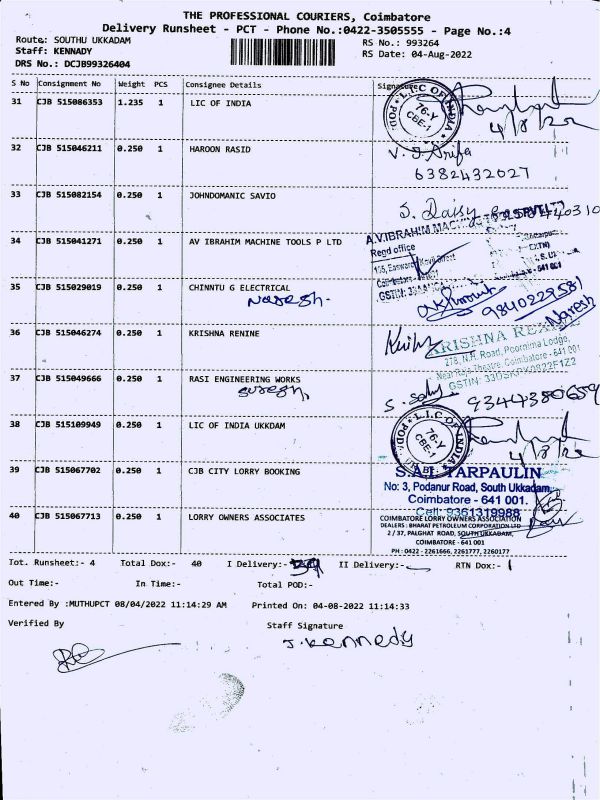 THE PROFESSIONAL COURIERS, Coimbatore
Delivery Runsheet - PCT - Phone No.:0422-3505555 - Page No.:4
Route: SOUTHU UKKADAM
RS No.: 993264
Staff: KENNADY
RS Date: 04-Aug-2022
DRS No.: DCJB99326404
S No Consignment No Weight PCS Consignee Details Signature
31 CJB 515086353 1.235 1 LIC OF INDIA
L.I.C OF INDIA
76-Y
CBE-1
4/8/22
32 CJB 515046211 0.250 1 HAROON RASID
6382432027
33 CJB 515082154 0.250 1 JOHNDOMANIC SAVIO
S. Daisy
34 CJB 515041271 0.250 1 AV IBRAHIM MACHINE TOOLS P LTD
A.V.IBRAHIM
Regd office
35 CJB 515029019 0.250 1 CHINNTU G ELECTRICAL
Naresh
9840229581
Naresh
36 CJB 515046274 0.250 1 KRISHNA RENINE
KRISHNA
278, N.H. Road, Poornima Lodge,
Near Raja Theatre, Coimbatore - 641 001
37 CJB 515049666 0.250 1 RASI ENGINEERING WORKS
suresh
9344380659
38 CJB 515109949 0.250 1 LIC OF INDIA UKKDAM
L.I.C OF INDIA
76-Y
CBE-1
4/8/22
39 CJB 515067702 0.250 1 CJB CITY LORRY BOOKING
TARPAULIN
No: 3, Podanur Road, South Ukkadam,
Coimbatore - 641 001.
Cell: 9361319988
40 CJB 515067713 0.250 1 LORRY OWNERS ASSOCIATES
COIMBATORE LORRY OWNERS ASSOCIATION
DEALERS : BHARAT PETROLEUM CORPORATION LTD
2 / 37, PALGHAT ROAD, SOUTH UKKADAM,
COIMBATORE - 641 001
PH : 0422 - 2261666, 2261777, 2260177
Tot. Runsheet:- 4 Total Dox:- 40 I Delivery:- 39 II Delivery:- RTN Dox:- 1
Out Time:- In Time:- Total POD:-
Entered By :MUTHUPCT 08/04/2022 11:14:29 AM Printed On: 04-08-2022 11:14:33
Verified By Staff Signature
J. Kennedy